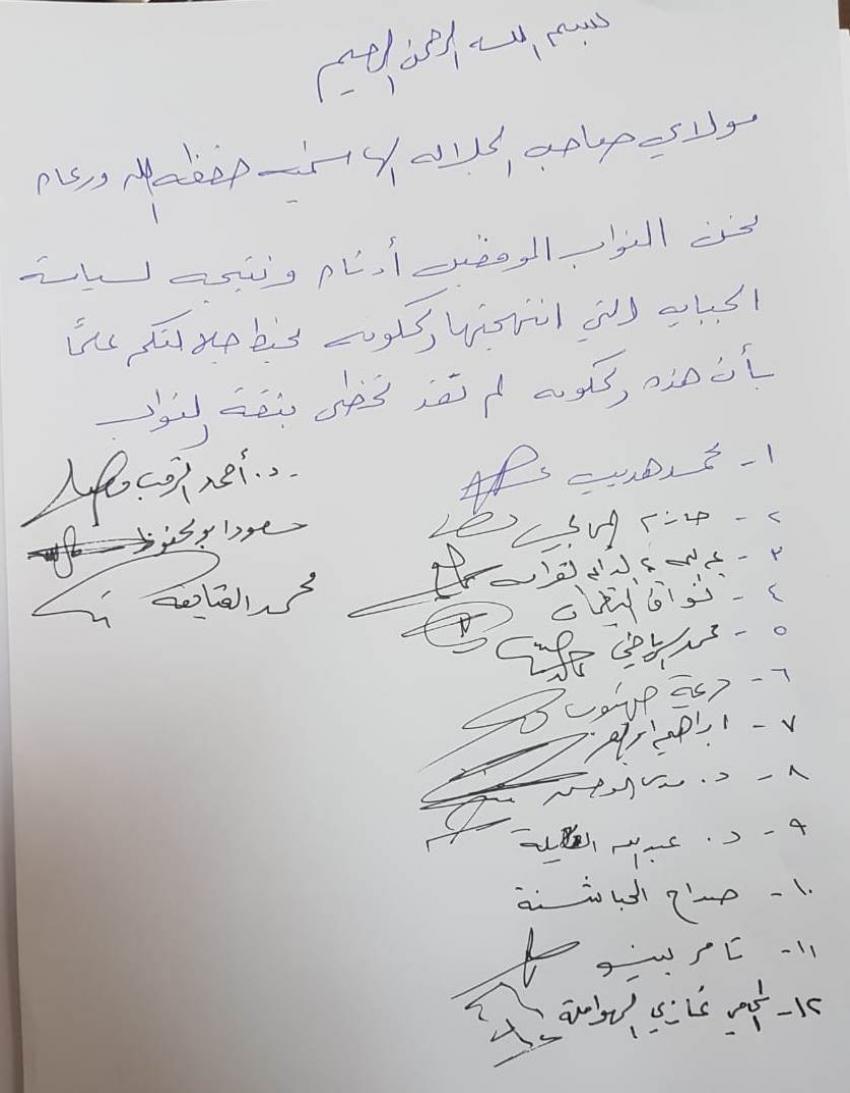 بسم الله الرحمن الرحيم
مولاي صاحب الجلالة الهاشمية حفظه الله ورعاه
نحن النواب الموقعين أدناه ونتيجه لسياسة
الجبايه التي انتهجتها الحكومه نحيط جلالتكم علمًا
بأن هذه الحكومه لم تعد تحظى بثقة النواب
١- محمد هديب
٢- حازم المجالي
٣-
٤- نواف النعيمات
٥- محمد الرياطي
٦- صهيوب
٧- ابراهيم
٨- د.
٩- د. عبدالله العكايلة
١٠- صداح الحباشنة
١١- تامر بينو
١٢- المحامي غازي الهواملة
د. أحمد الرقب
سعود ابو محفوظ
محمد العتايقة